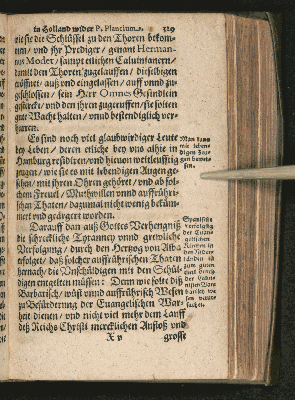 in Hollandt wider P. Plancium. 329
sie sie die Schlüssel zu den Thoren bekom-
men / und jhr Prediger / genant Herman-
nus Modet / sampt etlichen Calvinianern /
damit den Thoren zugelauffen / dieselbigen
eröffnet / auß und eingelassen / auff unnd zu
geschlossen / sein Herr Omnes Gesindlein
gesterckt / und den ihren zugeruffen / sie solten
gute Wacht halten / unnd bestendiglich ver-
harren.
Es sind noch viel glaubwirdiger Leute
bey Leben / deren etliche bey uns alhie in
Hamburg residiren / und hievon weitleufftig
zeugen / wie sie es mit lebendigen Augen ge-
sehen / mit ihren Ohren gehöret / und ab sol-
chen Frevel / Muthwillen unnd auffrühri-
schen Thaten / dazumal nicht wenig beküm-
mert und geärgert worden.
Darauff dan auß Gottes Verhengniß
die schreckliche Tyranney unnd grewliche
Verfolgung / durch den Hertzog von Alba
erfolget / daß solcher auffrührischen Thaten
hernach / die Unschüldigen mit den Schül-
digen entgelten müssen: Denn wie solte diß
Barbarisch / wüst unnd auffrührisch Wesen
zu Beförderung der Euangelischen War-
heit dienen / und nicht viel mehr dem Lauff
deß Reichs Christi mercklichen Anstoß und
X v grosse
Man kans
mit leben-
digen Zeu-
gen bewei-
sen.
Spanische
verfolgung
der Euan-
gelischen
Kirchen in
den Nider-
landen ist
zum guten
theil durch
der Calvi-
nisten Bar-
barisch we-
sen verur-
sachet.